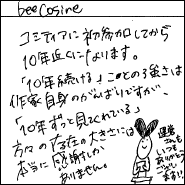 beecosine
コミティアに初参加してから
10年近くになります。
「10年続ける」ことの強さは
作家自身のがんばりですが、
「10年ずっと見てくれている」
方々の存在の大きさには
本当に感謝しか
ありません。
運営さんも
いつも
ありがとう
ございます!!